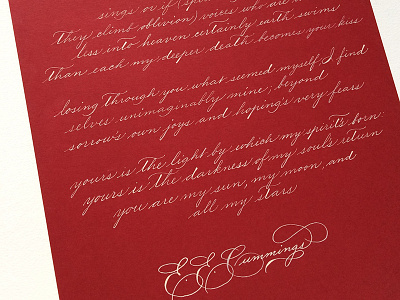 sings or if (spri
they climb oblivion) voices who are
liss into heaven certainly earth swims
than each my deeper death becomes your kiss
losing through you what seemed myself, I find
selves unimaginably mine; beyond
sorrow's own joys and hoping's very fears
yours is the light by which my spirit's born:
yours is the darkness of my soul's return
you are my sun, my moon, and
all my stars
EECummings